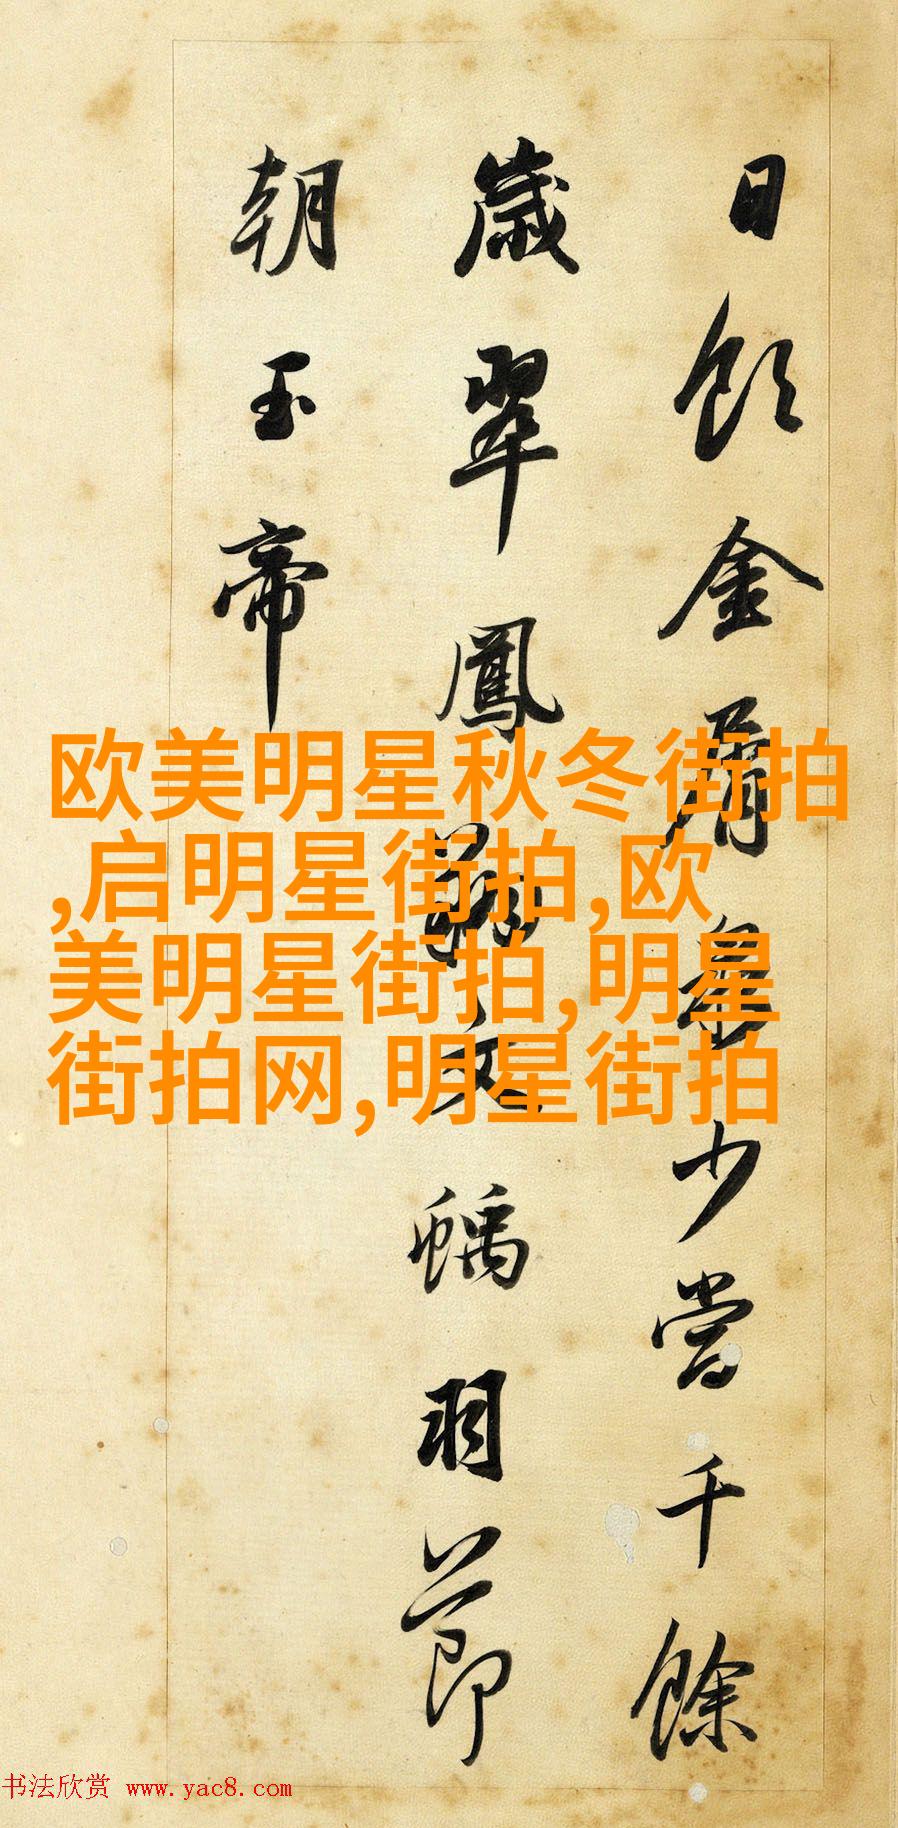 日飲金屑泉少當千餘
歲翠鳳文螭羽節
朝玉帝
欧美明星秋冬街拍
,启明星街拍,欧
美明星街拍,明星
街拍网,明星街拍
书法欣赏 www.yac8.com